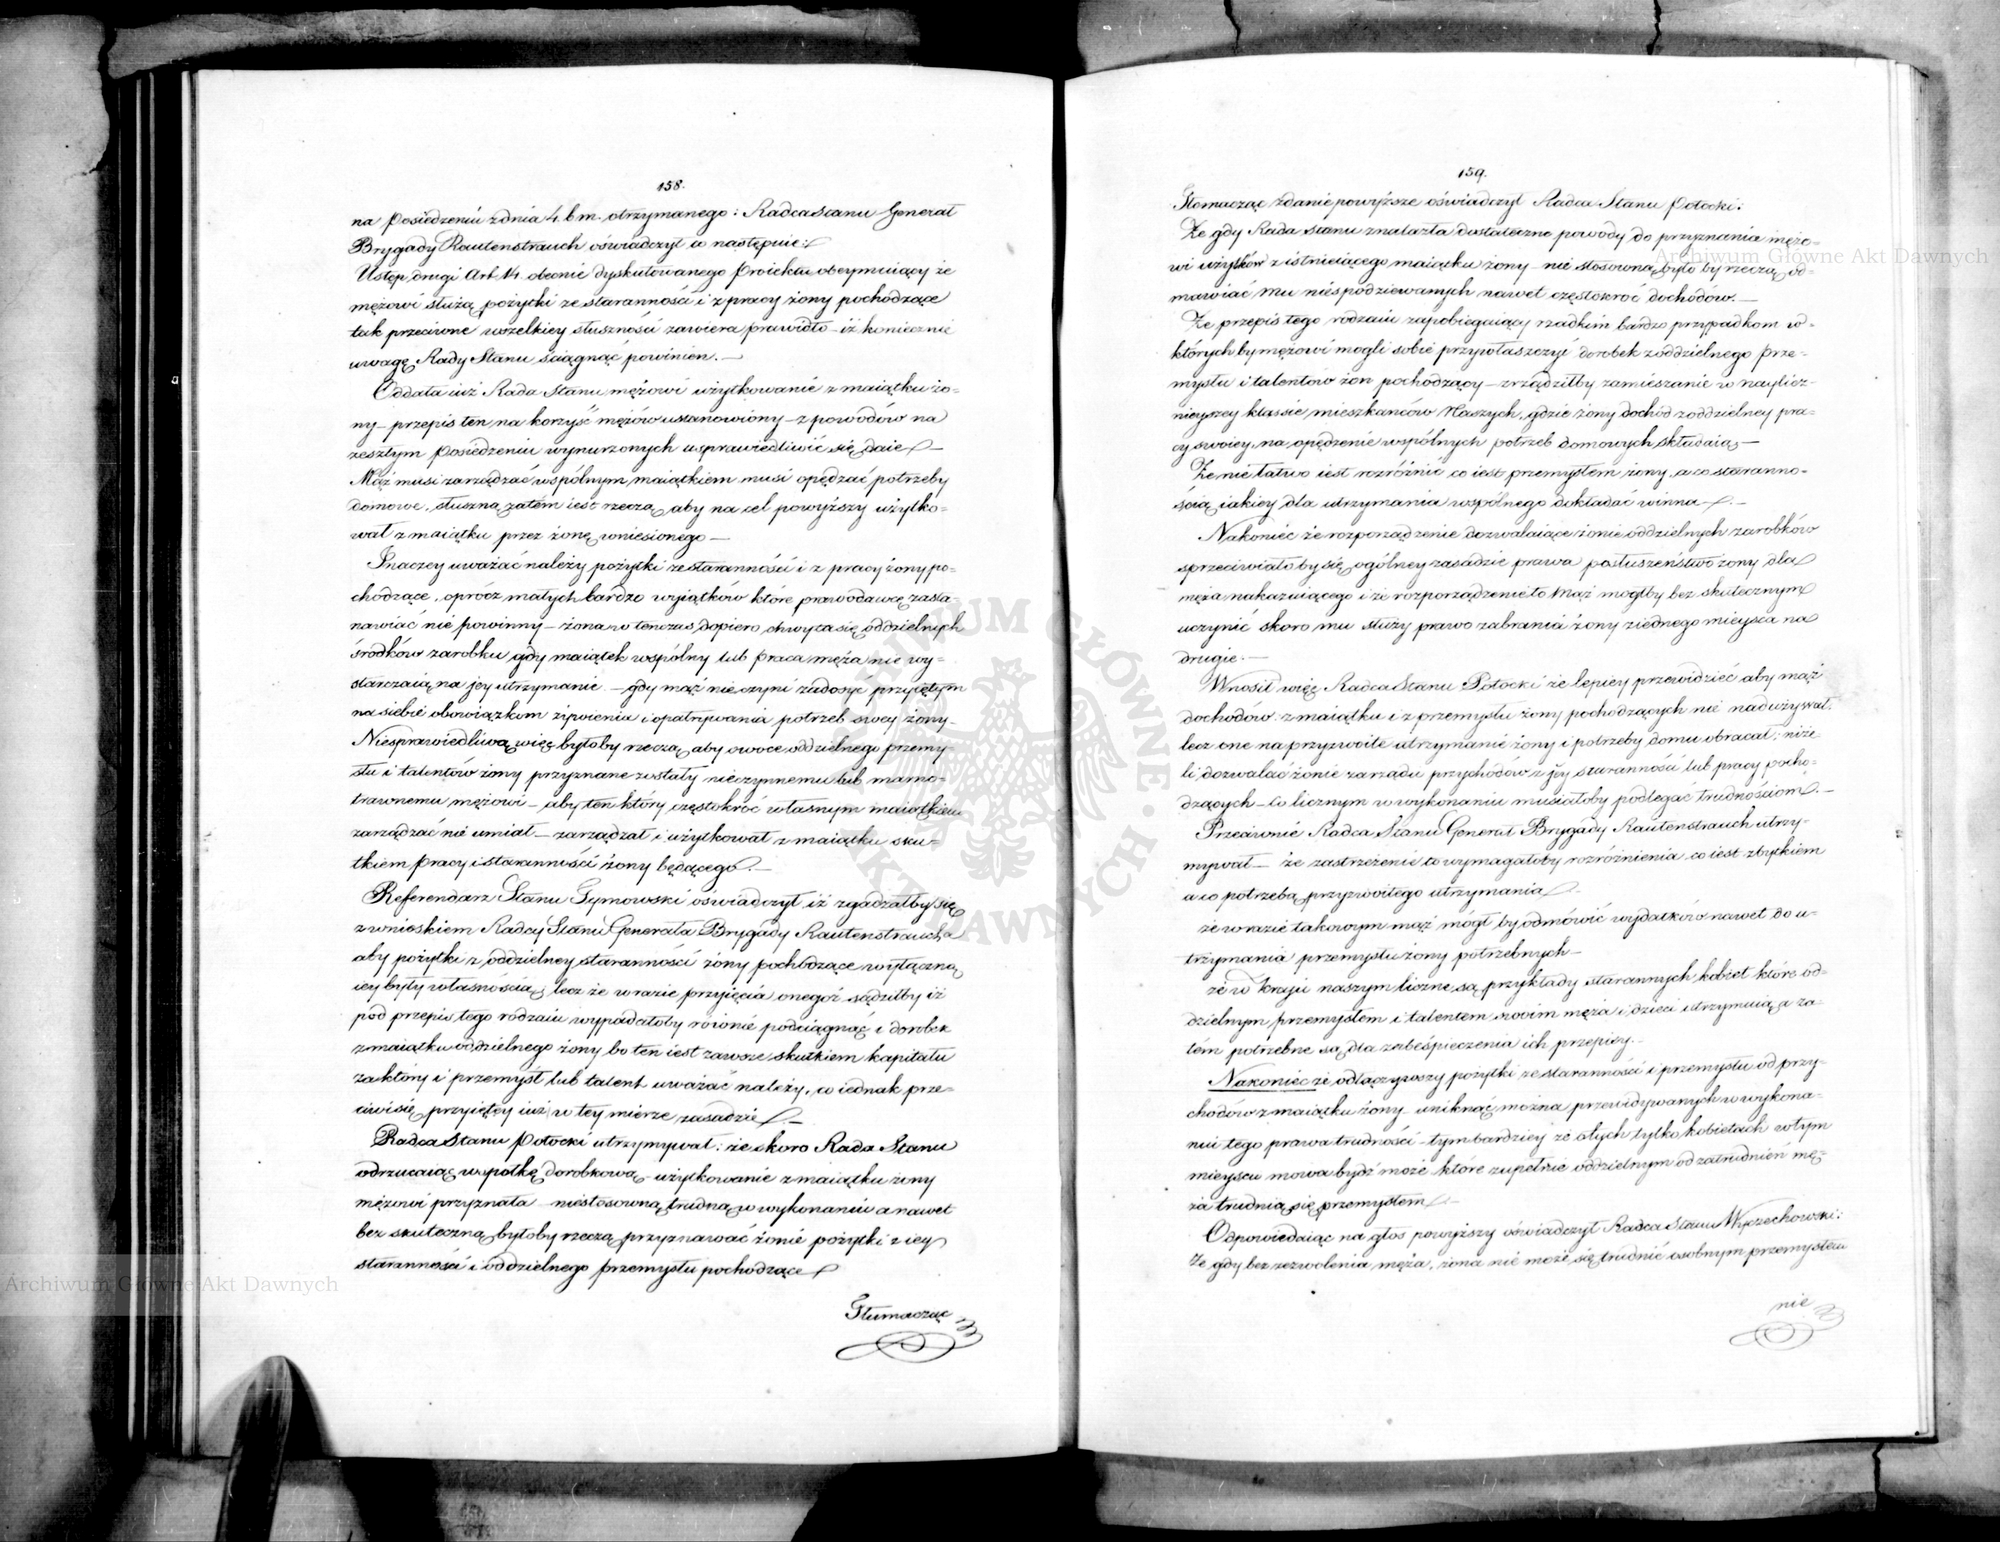 158.
na Posiedzeniu z dnia 4. b. m. otrzymanego: Radca Stanu Generał
Brygady Rautenstrauch oświadczył co następuie:
Ustęp drugi Art. 14. obecnie dyskutowanego Proiektu obeymuiący że
mężowi służą pożytki ze staranności i z pracy żony pochodzące
tak przeciwne wszelkiey słuszności zawiera prawidło iż koniecznie
uwagę Rady Stanu ściągnąć powinien. —
Oddała iuż Rada Stanu mężowi użytkowanie z maiątku żo=
ny – przepis ten na korzyść mężów ustanowiony – z powodów na
zeszłym Posiedzeniu wynurzonych usprawiedliwić się daie —
Mąż musi zarządzać wspólnym maiątkiem musi opędzać potrzeby
domowe, słuszną zatém iest rzeczą aby na cel powyższy użytko=
wał z maiątku przez żonę wniesionego —
Inaczey uważać należy pożytki ze staranności i z pracy żony po=
chodzące, oprócz małych bardzo wyiątków które prawodawcę zasta=
nawiać nie powinny – żona w tenczas dopiero chwyta się oddzielnych
środków zarobku gdy maiątek wspólny lub praca męża nie wy=
starczaią na jey utrzymanie – gdy mąż nie czyni zadosyć przyiętym
na siebie obowiązkom żywienia i opatrywania potrzeb swey żony –
Niesprawiedliwą więc byłoby rzeczą aby owoce oddzielnego przemy=
słu i talentów żony przyznane zostały nieczynnemu lub marno=
trawnemu mężowi – aby ten który częstokroć własnym maiątkiem
zarządzać nie umiał – zarządzał i użytkował z maiątku sku=
tkiem pracy i staranności żony będącego. —
Referendarz Stanu Tymowski oświadczył iż zgadzałby się
z wnioskiem Radcy Stanu Generała Brygady Rautenstraucha
aby pożytki z oddzielney staranności żony pochodzące wyłączną
iey były własnością, lecz że w razie przyięcia onegoż sądziłby iż
pod przepis tego rodzaiu wypadałoby rownie podciągnąć i dorobek
z maiątku oddzielnego żony bo ten iest zawsze skutkiem kapitału
za który i przemysł lub talent uważać należy, co iednak prze=
ciwi się przyiętey iuż w tey mierze zasadzie —
Radca Stanu Potocki utrzymywał: że skoro Rada Stanu
odrzucaiąc wspołkę dorobkową użytkowanie z maiątku żony
mężowi przyznała niestosowną trudną w wykonaniu a nawet
bezskuteczną byłoby rzeczą przyznawać żonie pożytki z iey
staranności i oddzielnego przemysłu pochodzące
Tłumacząc
159.
Tłomacząc zdanie powyższe oświadczył Radca Stanu Potocki:
Że gdy Rada Stanu znalazła dostateczne powody do przyznania mężo=
wi użytków z istnieiącego maiątku żony – nie stosowną było by rzeczą od=
mawiać mu niespodziewanych nawet częstokroć dochodów. —
Że przepis tego rodzaiu zapobiegaiący rzadkim bardzo przypadkom w=
których by mężowi mogli sobie przywłaszczyć dorobek z oddzielnego prze=
mysłu i talentów żon pochodzący – zrządziłby zamieszanie w naylicz=
nieyszey klassie mieszkanców Naszych, gdzie żony dochód z oddzielney pra=
cy swoiey na opędzenie wspólnych potrzeb domowych składaią —
Że nie łatwo iest rozróżnić co iest przemysłem żony, a co staranno=
ścią iakiey dla utrzymania wspólnego dokładać winna —
Nakoniec że rozporządzenie dozwalaiące żonie oddzielnych zarobków
sprzeciwiałoby się ogólney zasadzie prawa posłuszeństwo żony dla
męża nakazuiącego i że rozporządzenie to Mąż mogłby bezskutecznym
uczynić skoro mu służy prawo zabrania żony z iednego mieysca na
drugie. —
Wnosił więc Radca Stanu Potocki że lepiey przewidzieć aby mąż
dochodów z maiątku i z przemysłu żony pochodzących nie nadużywał,
lecz one na przyzwoite utrzymanie żony i potrzeby domu obracał; niże=
li dozwalać żonie zarządu przychodów z jey staranności lub pracy pocho=
dzących – co licznym w wykonaniu musiałoby podlegać trudnościom. —
Przeciwnie Radca Stanu Generał Brygady Rautenstrauch utrzy=
mywał – że zastrzeżenie to wymagałoby rozróżnienia co iest zbytkiem
a co potrzebą przyzwoitego utrzymania —
że w razie takowym mąż mógł by odmówić wydatków nawet do u=
trzymania przemysłu żony potrzebnych —
że w kraju naszym liczne są przykłady starannych kobiet które od=
dzielnym przemysłem i talentem swoim męża i dzieci utrzymuią a za=
tém potrzebne są dla zabespieczenia ich przepisy. –
Nakoniec że odłączywszy pożytki ze staranności i przemysłu od przy=
chodów z maiątku żony – uniknąć można przewidywanych w wykona=
niu tego prawa trudności – tym bardziey że o tych tylko kobietach w tym
mieyscu mowa bydź może które zupełnie oddzielnym od zatrudnień mę=
ża trudnią się przemysłem —
Odpowiedaiąc na głos powyższy oświadczył Radca Stanu Wyczechowski:
Że gdy bez zezwolenia męża, żona nie może się trudnić osobnym przemysłem
nie
Archiwum Główne Akt Dawnych
Archiwum Główne Akt Dawnych
ARCHIWUM GŁÓWNE AKT DAWNYCH